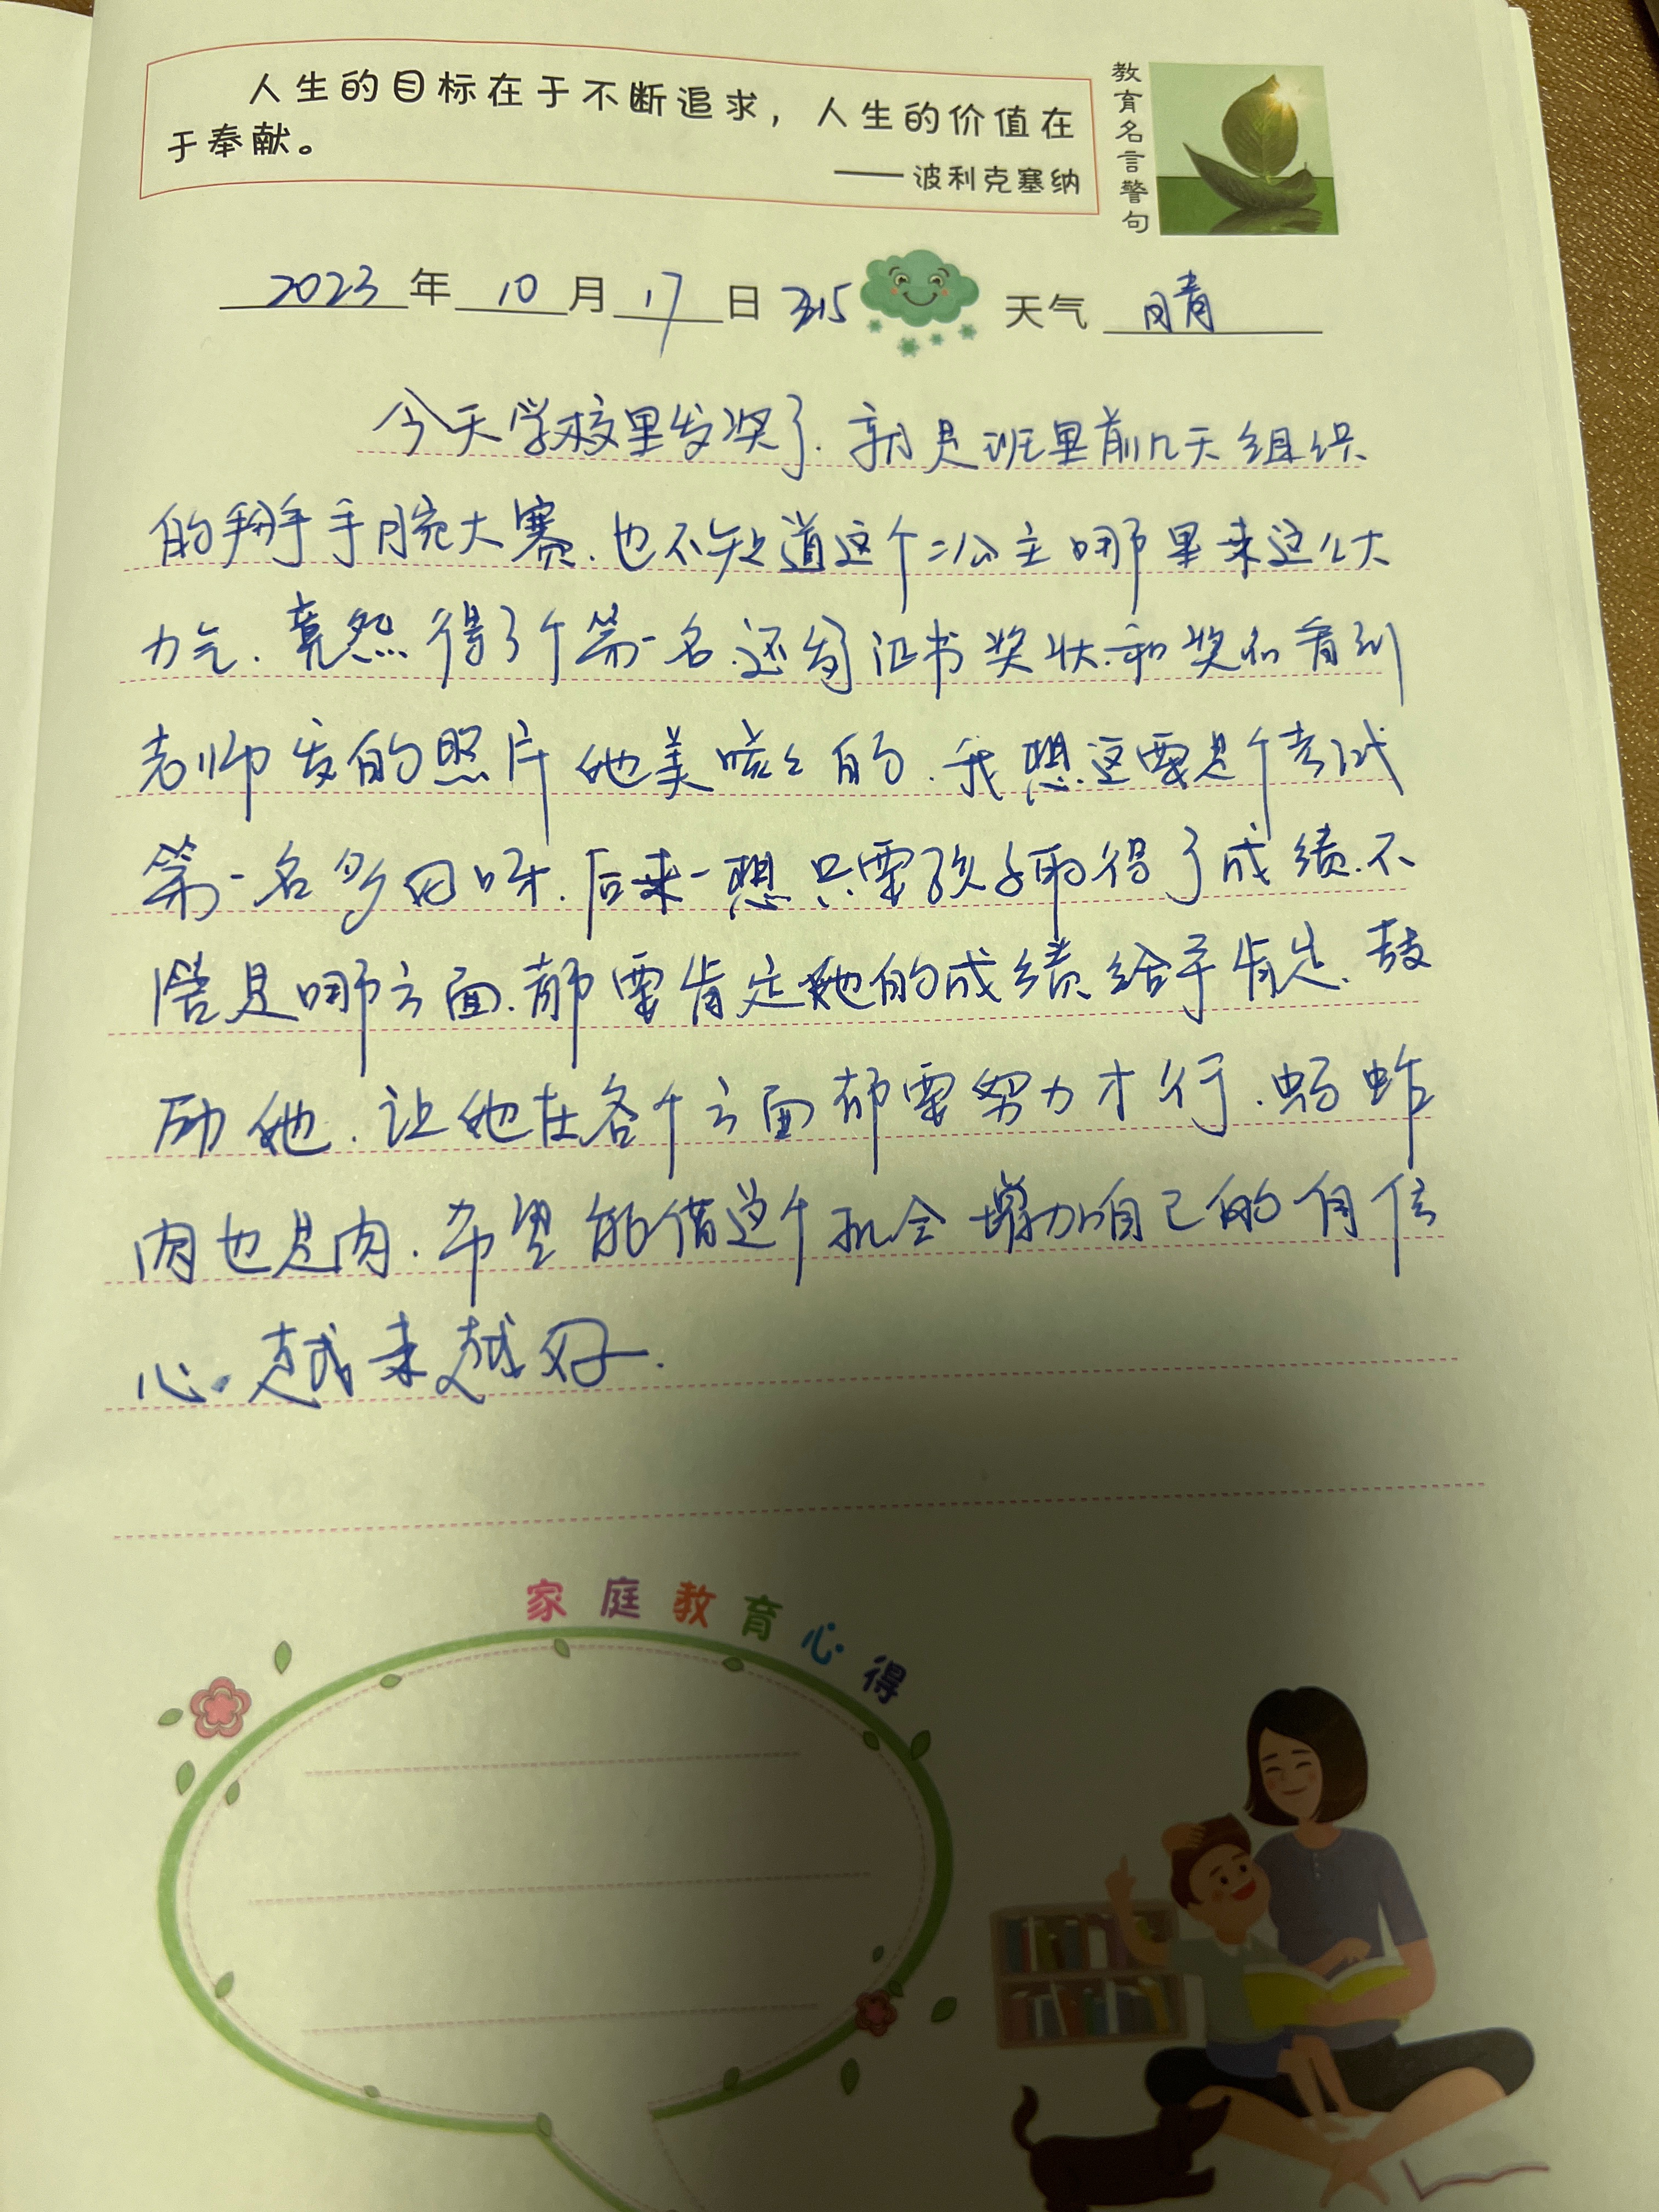 人生的目标在于不断追求，人生的价值在
于奉献。
——波利克塞纳
教育名言警句
2023年10月17日 315 天气 晴
今天学校里发奖了.就是班里前几天组织
的掰手手腕大赛.也不知道这个二公主哪里来这么大
力气.竟然得了个第一名.还发了证书奖状.和奖 看到
老师发的照片她美滋滋的.我想这要是个考试
第一名多好呀.后来一想只要孩子取得了成绩.不
管是哪方面.都要肯定她的成绩给予肯定.鼓
励她.让她在各个方面都要努力才行.蚂蚱
肉也是肉.希望能借这个机会增加自己的自信
心.越来越好.
家庭教育心得